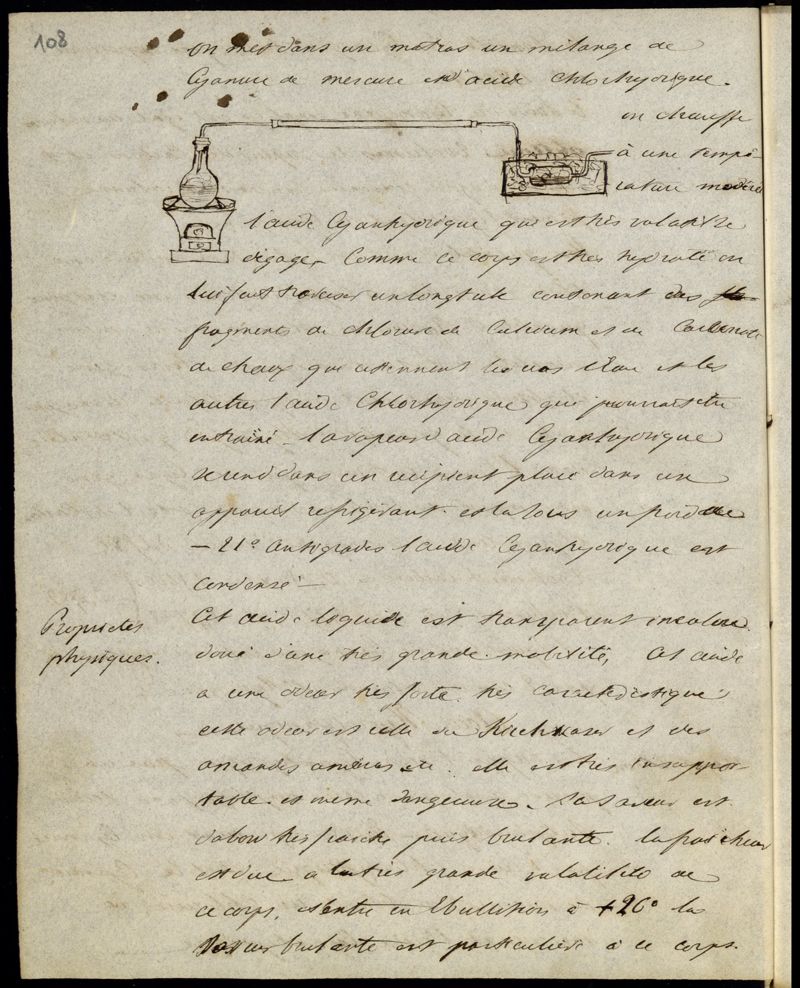 108
on met dans un matras un mélange de
Cyanure de mercure et d'acide Chlorhydrique.
on chauffe
à une tempé-
rature modérée
l'acide Cyanhydrique qui est très volatil se
dégage. Comme ce corps est très hydraté on
lui fait traverser un long tube contenant des
fragments de chlorure de Calcium et de Carbonate
de chaux qui retiennent les uns l'eau et les
autres l'acide Chlorhydrique qui pourrait être
entrainé. la vapeur d'acide Cyanhydrique
se rend dans un récipient placé dans un
appareil réfrigérant. et là sous un froid de
- 21° centigrades l'acide Cyanhydrique est
condensé -
Propriétés
physiques.
Cet acide liquide est transparent incolore
doué d'une très grande mobilité, Cet acide
a une odeur très forte très caractéristique:
cette odeur est celle du Kirchwaser et des
amandes amères elle est très insuppor-
table et même dangereuse. Sa saveur est
d'abord très fraiche puis brulante. la fraicheur
est due a la très grande volatilité de
ce corps. il entre en Ebullition à +26° la
saveur brulante est particulière à ce corps.